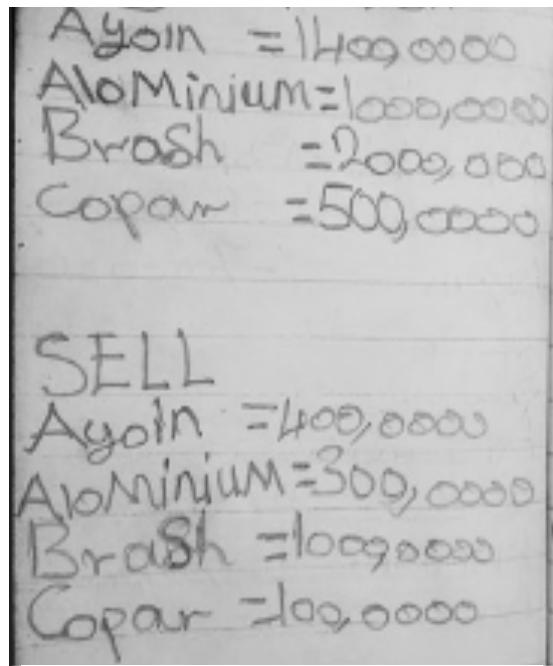 Ayoin =1400,0000
AloMinium=1000,0000
Brash =2000,000
Copar =500,0000
SELL
Ayoin =400,0000
AloMinium=300,0000
Brash =1000,0000
Copar =100,0000